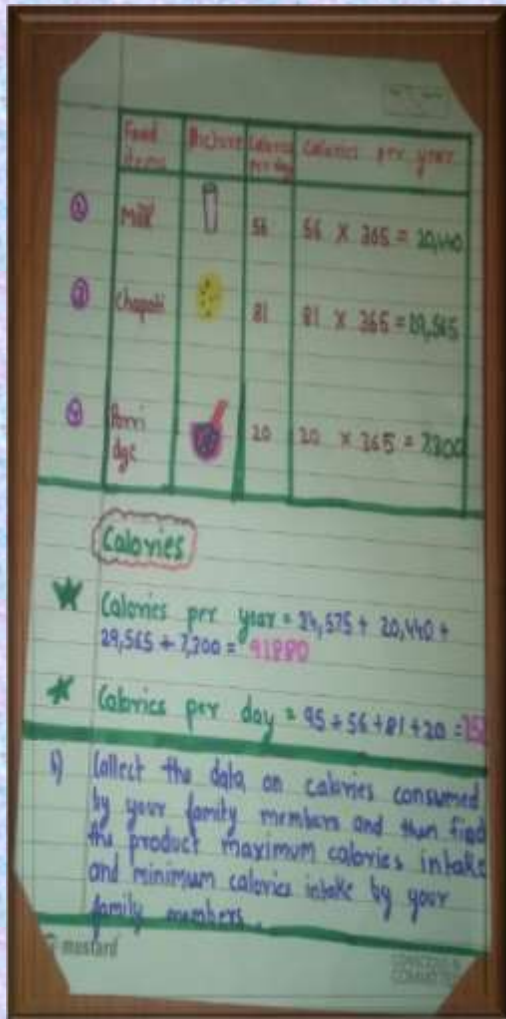 Food items Picture Calories per day Calories per year
② Milk 56 56 X 365 = 20,440
③ Chapati 81 81 X 365 = 29,565
④ Porri dge 20 20 X 365 = 7,300
Calories
Calories per year = 34,675 + 20,440 +
29,565 + 7,300 = 91980
Calories per day = 95 + 56 + 81 + 20 =
b) Collect the data on calories consumed
by your family members and then find
the product maximum calories intake
and minimum calories intake by your
family members.
mustard